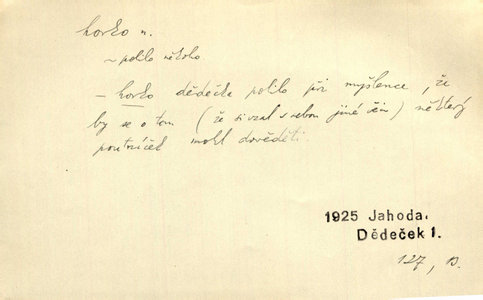 horko n.
~ polilo někoho
– horko dědečka polilo při myšlence, že
by se o tom (že si vzal s sebou jiné           ) některý
poutníček mohl dověděti
1925 Jahoda.
Dědeček 1.
127, B.